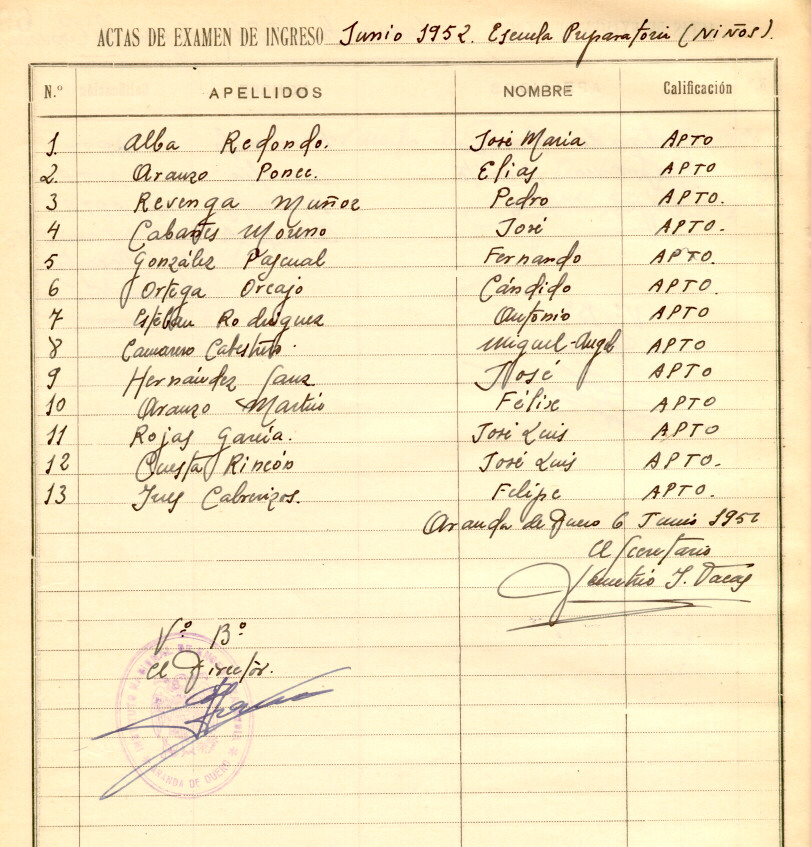 ACTAS DE EXAMEN DE INGRESO Junio 1952. Escuela Preparatoria (NIÑOS).
N.º APELLIDOS NOMBRE Calificación
1. Alba Redondo. José María APTO
2. Arauzo Ponce. Elías APTO
3 Revenga Muñoz Pedro APTO.
4 Cabañes Moreno José APTO.
5 González Pascual Fernando APTO.
6 Ortega Orcajo Cándido APTO.
7 Esteban Rodríguez Antonio APTO.
8 Camarero Miguel-Angel APTO
9 Hernández Sanz José APTO
10 Arauzo Martín Félix APTO
11 Rojas García. José Luis APTO
12 Cuesta Rincón José Luis APTO.
13 Cabrerizos. Felipe APTO.
Aranda de Duero 6 Junio 1952
El Secretario
Demetrio
Vº. Bº.
El Director.
ARANDA DE DUERO